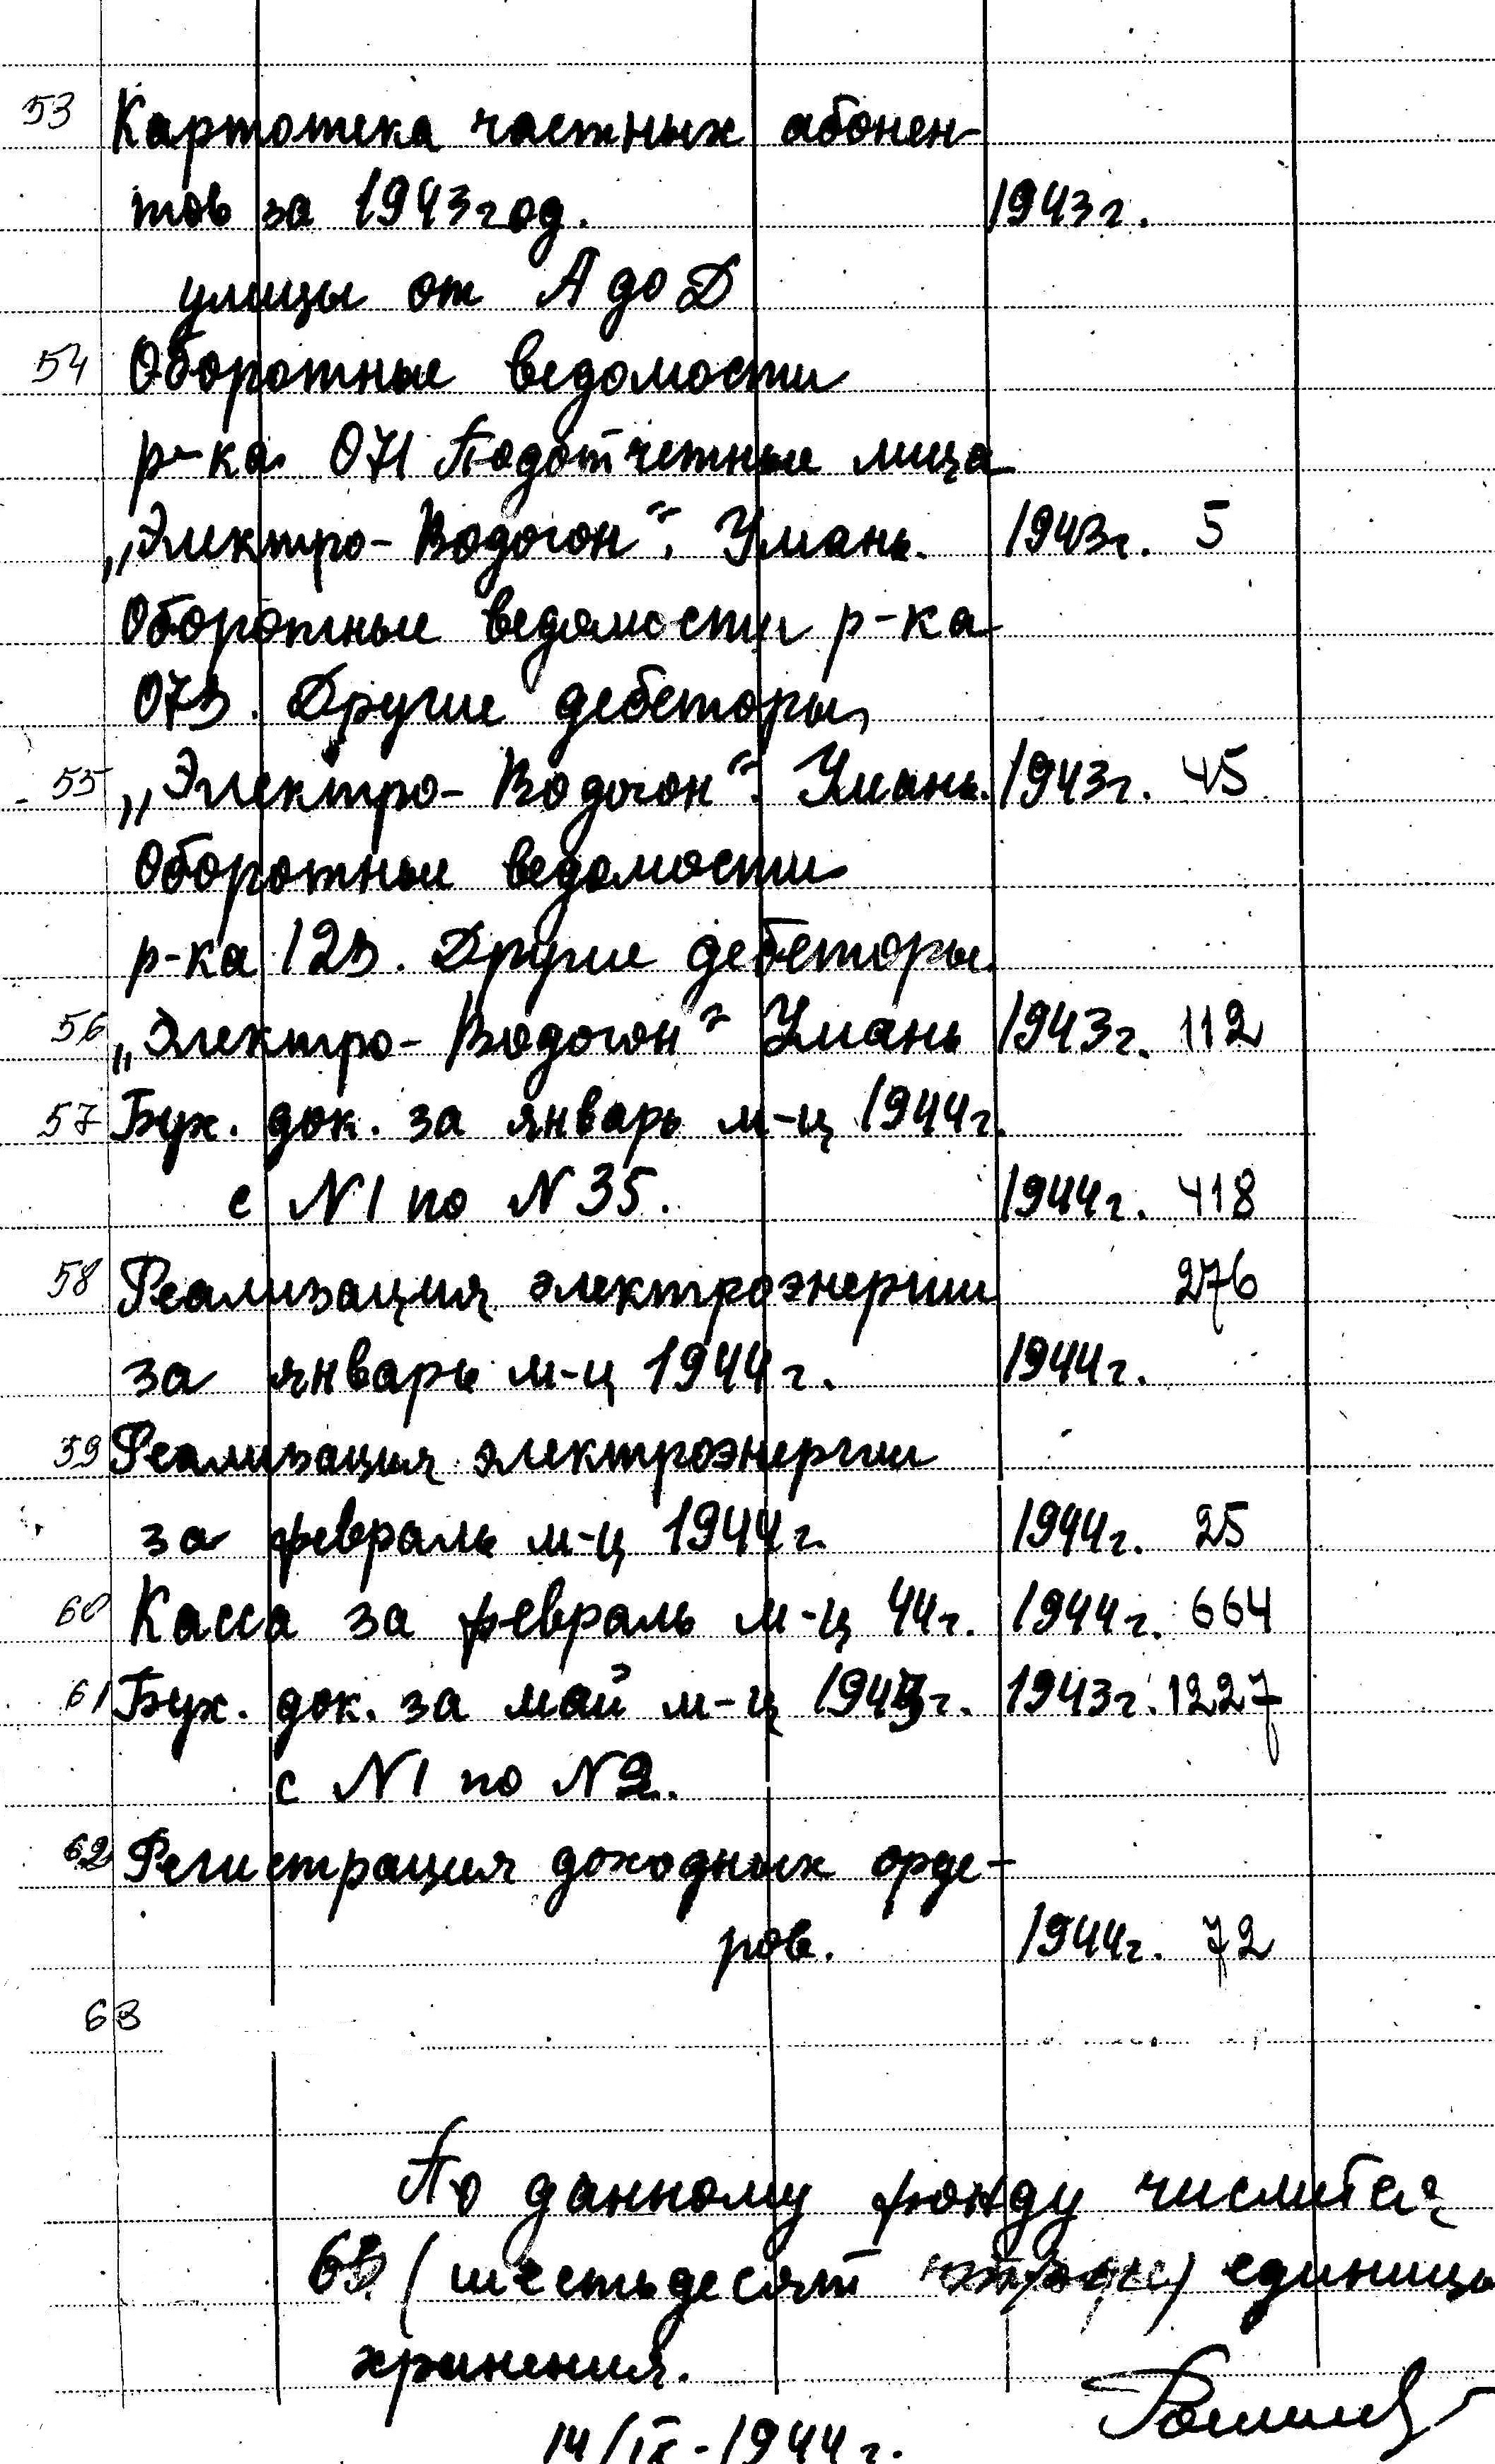 53 Картотека частных абонен-
тов за 1943 год. 1943 г.
улицы от А до Д
54 Оборотные ведомости
р-ка 071 Подотчетные лица
„Электро-Водогон“. Умань. 1943 г. 5
Оборотные ведомости р-ка
073. Другие дебеторы,
55 „Электро-Водогон“. Умань. 1943 г. 45
Оборотные ведомости
р-ка 123. Другие дебеторы.
56 „Электро-Водогон“ Умань 1943 г. 112
57 Бух. док. за январь м-ц 1944 г.
с N 1 по N 35. 1944 г. 418
58 Реализация электроэнергии 276
за январь м-ц 1944 г. 1944 г.
59 Реализация электроэнергии
за февраль м-ц 1944 г. 1944 г. 25
60 Касса за февраль м-ц 44 г. 1944 г. 664
61 Бух. док. за май м-ц 1943 г. 1943 г. 1227
с N 1 по N 2.
62 Регистрация доходных орде-
ров. 1944 г. 72
63
По данному фонду числится
63 (шестьдесят три) единицы
хранения.
14/IX-1944 г.